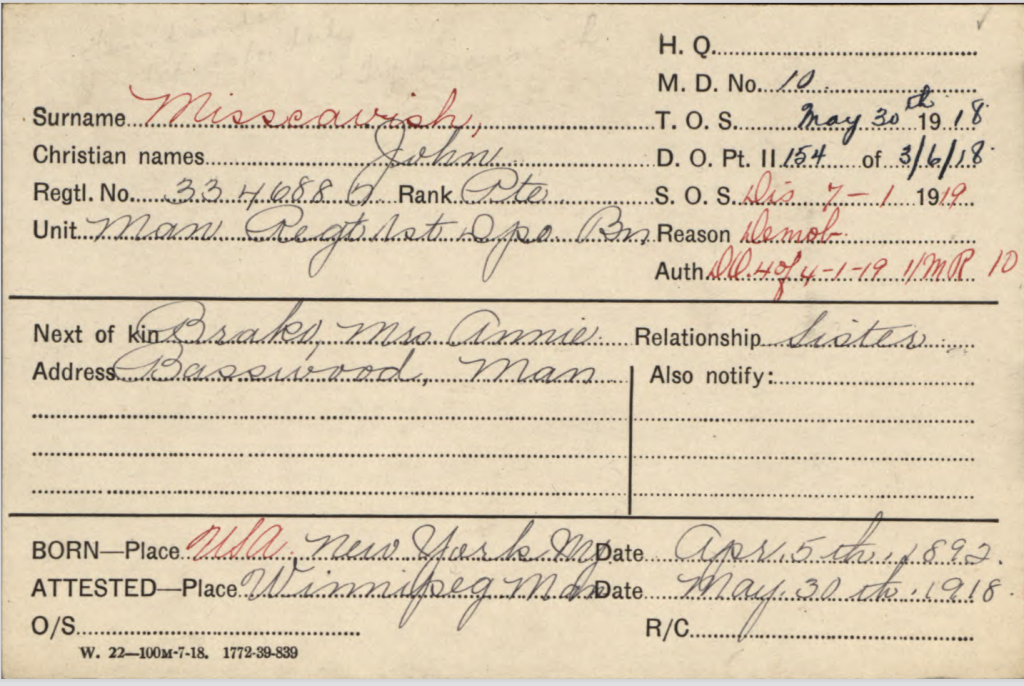 H. Q.
M. D. No. 10
Surname Misscavish,
T. O. S. May 30th 1918
Christian names John
D. O. Pt. II 154 of 3/6/18
Regtl. No. 3346887 Rank Pte
S. O. S. Dis 7-1 1919
Unit Man Regt 1st Dpo. Bn
Reason Demob
Auth DO. 4 of 4-1-19 1/MR 10
Next of kin Brako, Mrs Annie
Relationship Sister
Address Basswood, Man
Also notify:
BORN—Place USA. New York Ny
Date Apr. 5th. 1892
ATTESTED—Place Winnipeg Man
Date May. 30th. 1918.
O/S
R/C
W. 22—100M-7-18. 1772-39-839